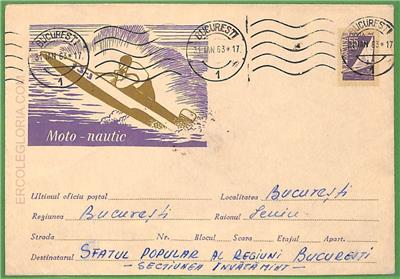 BUCUREȘTI
31 IAN 63 * 17
1
BUCUREȘTI
31 IAN 63 * 17
1
55
Moto-nautic
ERCOLEGLORIA.COM
Ultimul oficiu poștal
Localitatea București
Regiunea București Raionul Lenin
Strada Nr. Blocul Scara Etajul Apart.
Destinatarul SFATUL POPULAR AL REGIUNI BUCUREȘTI
- SECTIUNEA INVATAMINT -